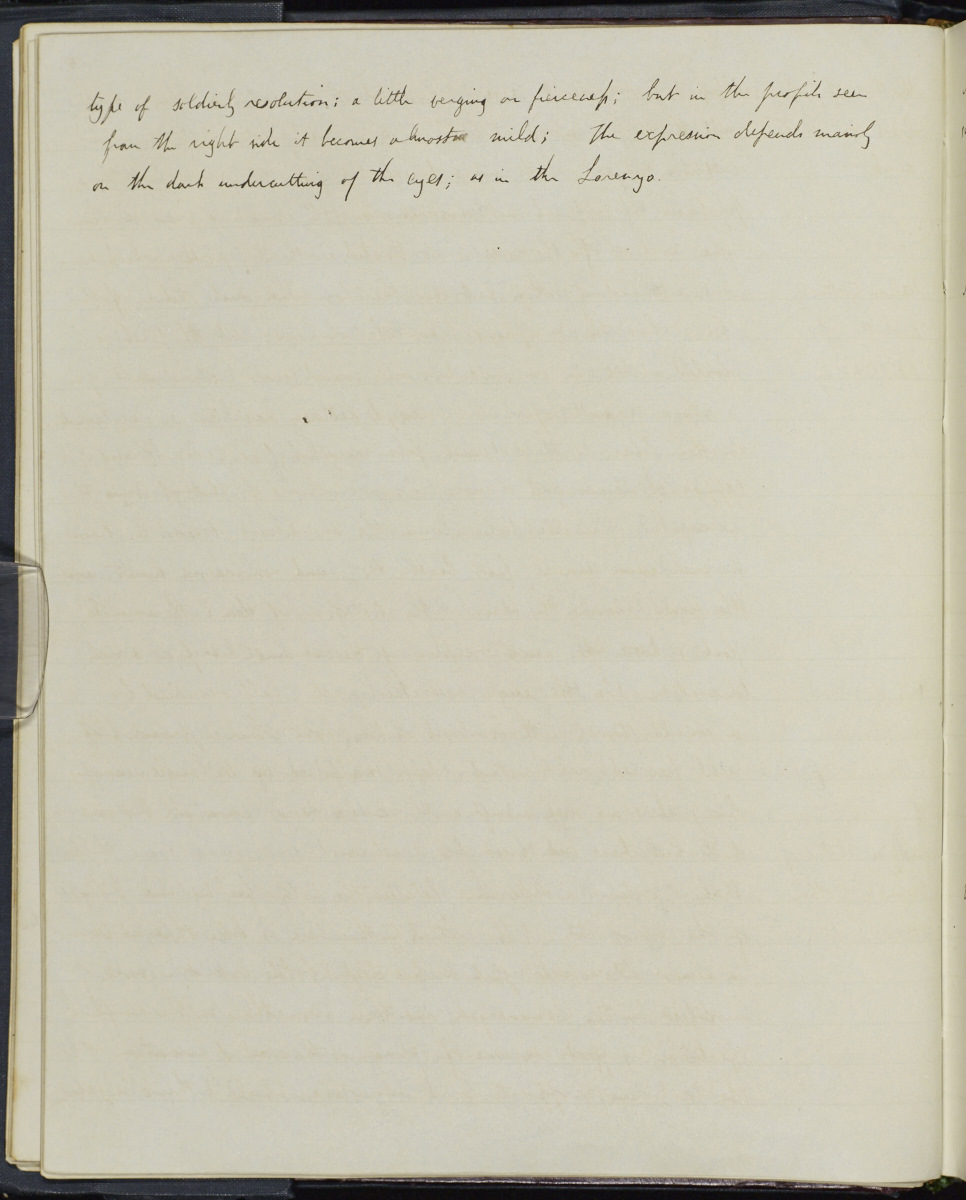 type of soldierly resolution; a little verging on fierceness; but in the profile seen
from the right side it becomes almost mild; the expression depends mainly
on the dark undercutting of the eyes; as in the Lorenzo.